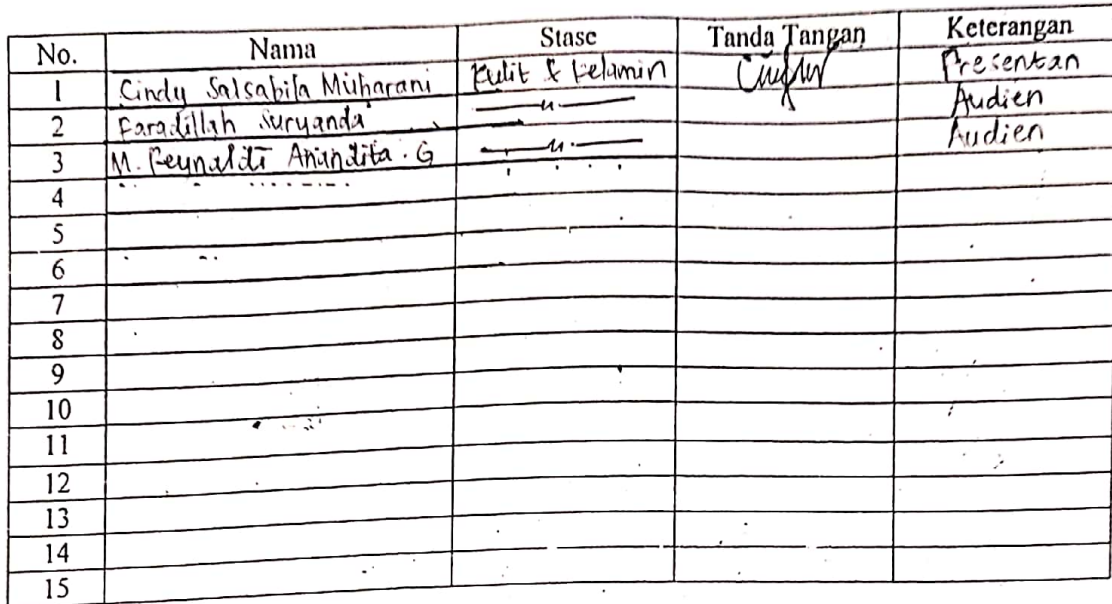 No. Nama Stase Tanda Tangan Keterangan
1 Cindy Salsabila Muharani Kulit & Kelamin Presentan
2 Faradillah Suryanda —"— Audien
3 M. Reynaldi Anandita . G —"— Audien
4
5
6
7
8
9
10
11
12
13
14
15